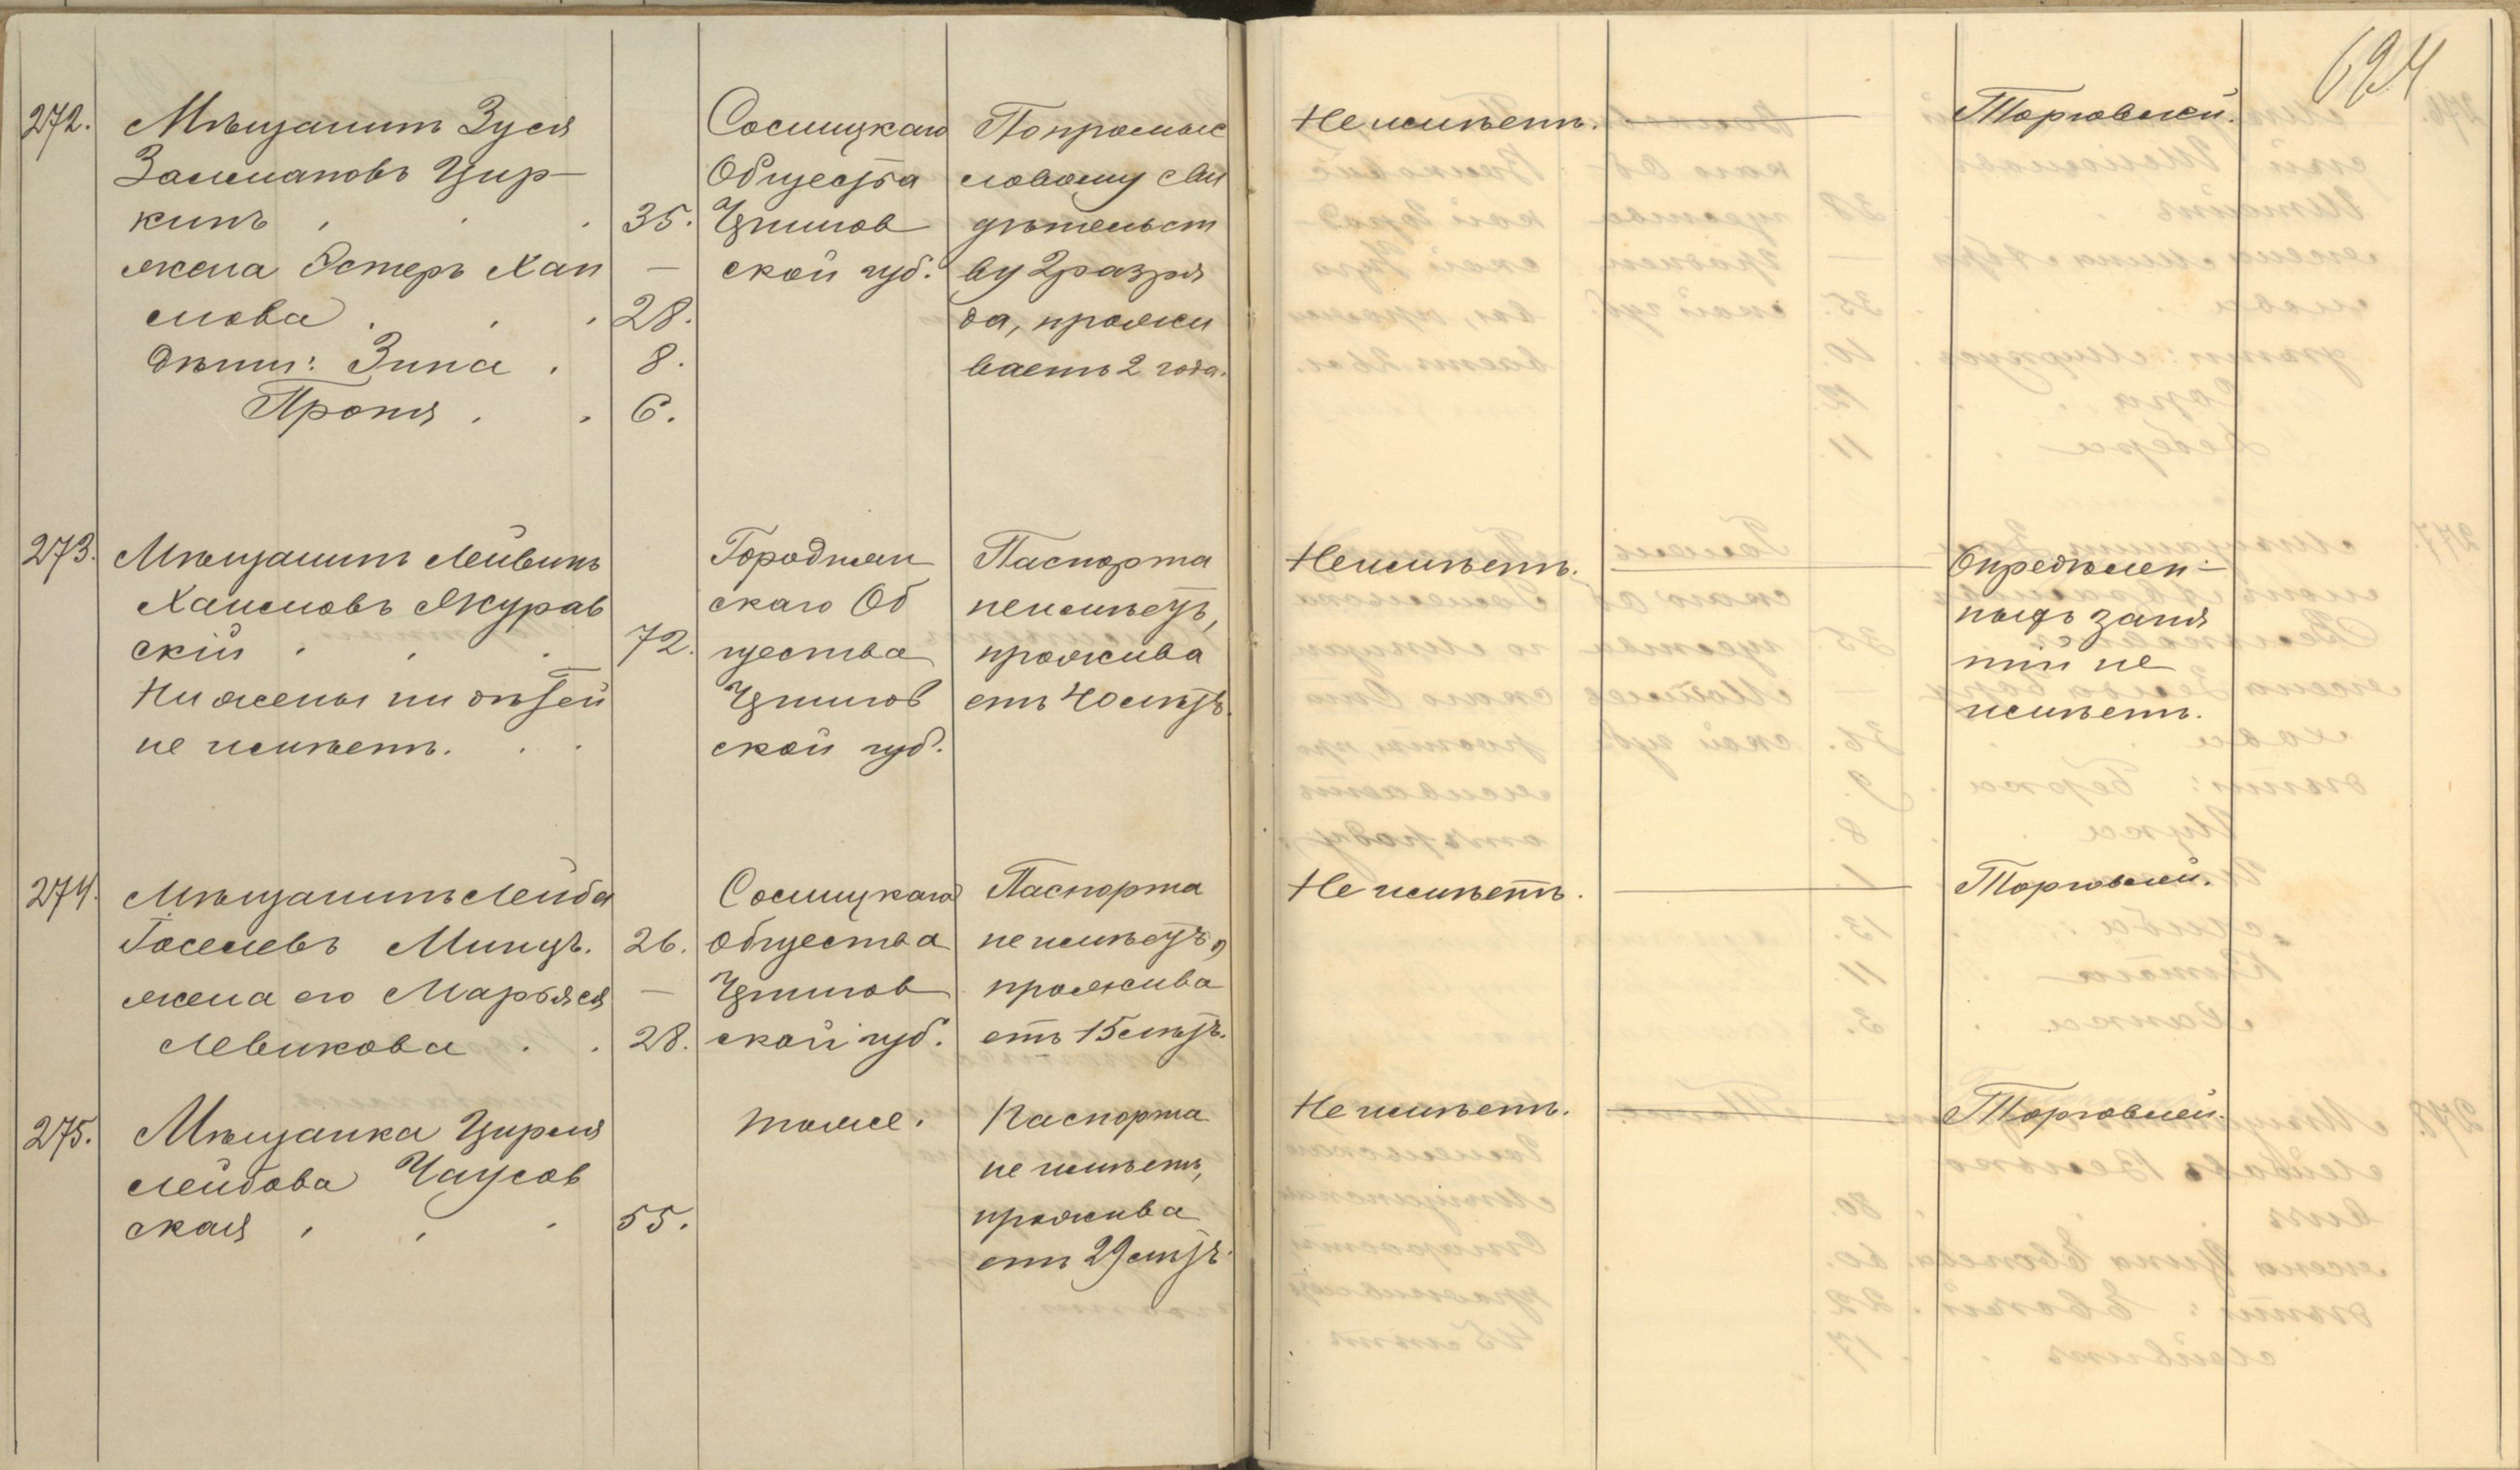 694
272.
Мѣщанинъ Зуся
Залмановъ Цир-
кинъ . . . 35.
жена Эстеръ Хаи —
мова . . . 28.
дѣти: Зина . 8.
Проня . . 6.
Сосницкаго
Общества
Чернигов
ской губ.
По промыс
ловому сви
дѣтельст
ву 2 разря
да, прожи
ваетъ 2 года.
Не имѣетъ. —
Торговлей.
273.
Мѣщанинъ Лейвикъ
Хаимовъ Журав
скій . . . 72.
Ни жены ни дѣтей
не имѣетъ. . .
Городнян
скаго Об
щества
Чернигов
ской губ.
Паспорта
не имѣетъ,
прожива
етъ 40 лѣтъ.
Не имѣетъ. —
Опредѣлен-
ныхъ заня
тій не
имѣетъ.
274.
Мѣщанинъ Лейба
Іоселевъ Минцъ. 26.
жена его Марьяся —
Левикова . . 28.
Сосницкаго
Общества
Чернигов
ской губ.
Паспорта
не имѣетъ,
прожива
етъ 15 лѣтъ.
Не имѣетъ. —
Торговлей.
275.
Мѣщанка Цирля
Лейбова Чаусов
ская . . . 55.
тоже.
Паспорта
не имѣетъ,
прожива
етъ 29 лѣтъ.
Не имѣетъ. —
Торговлей.